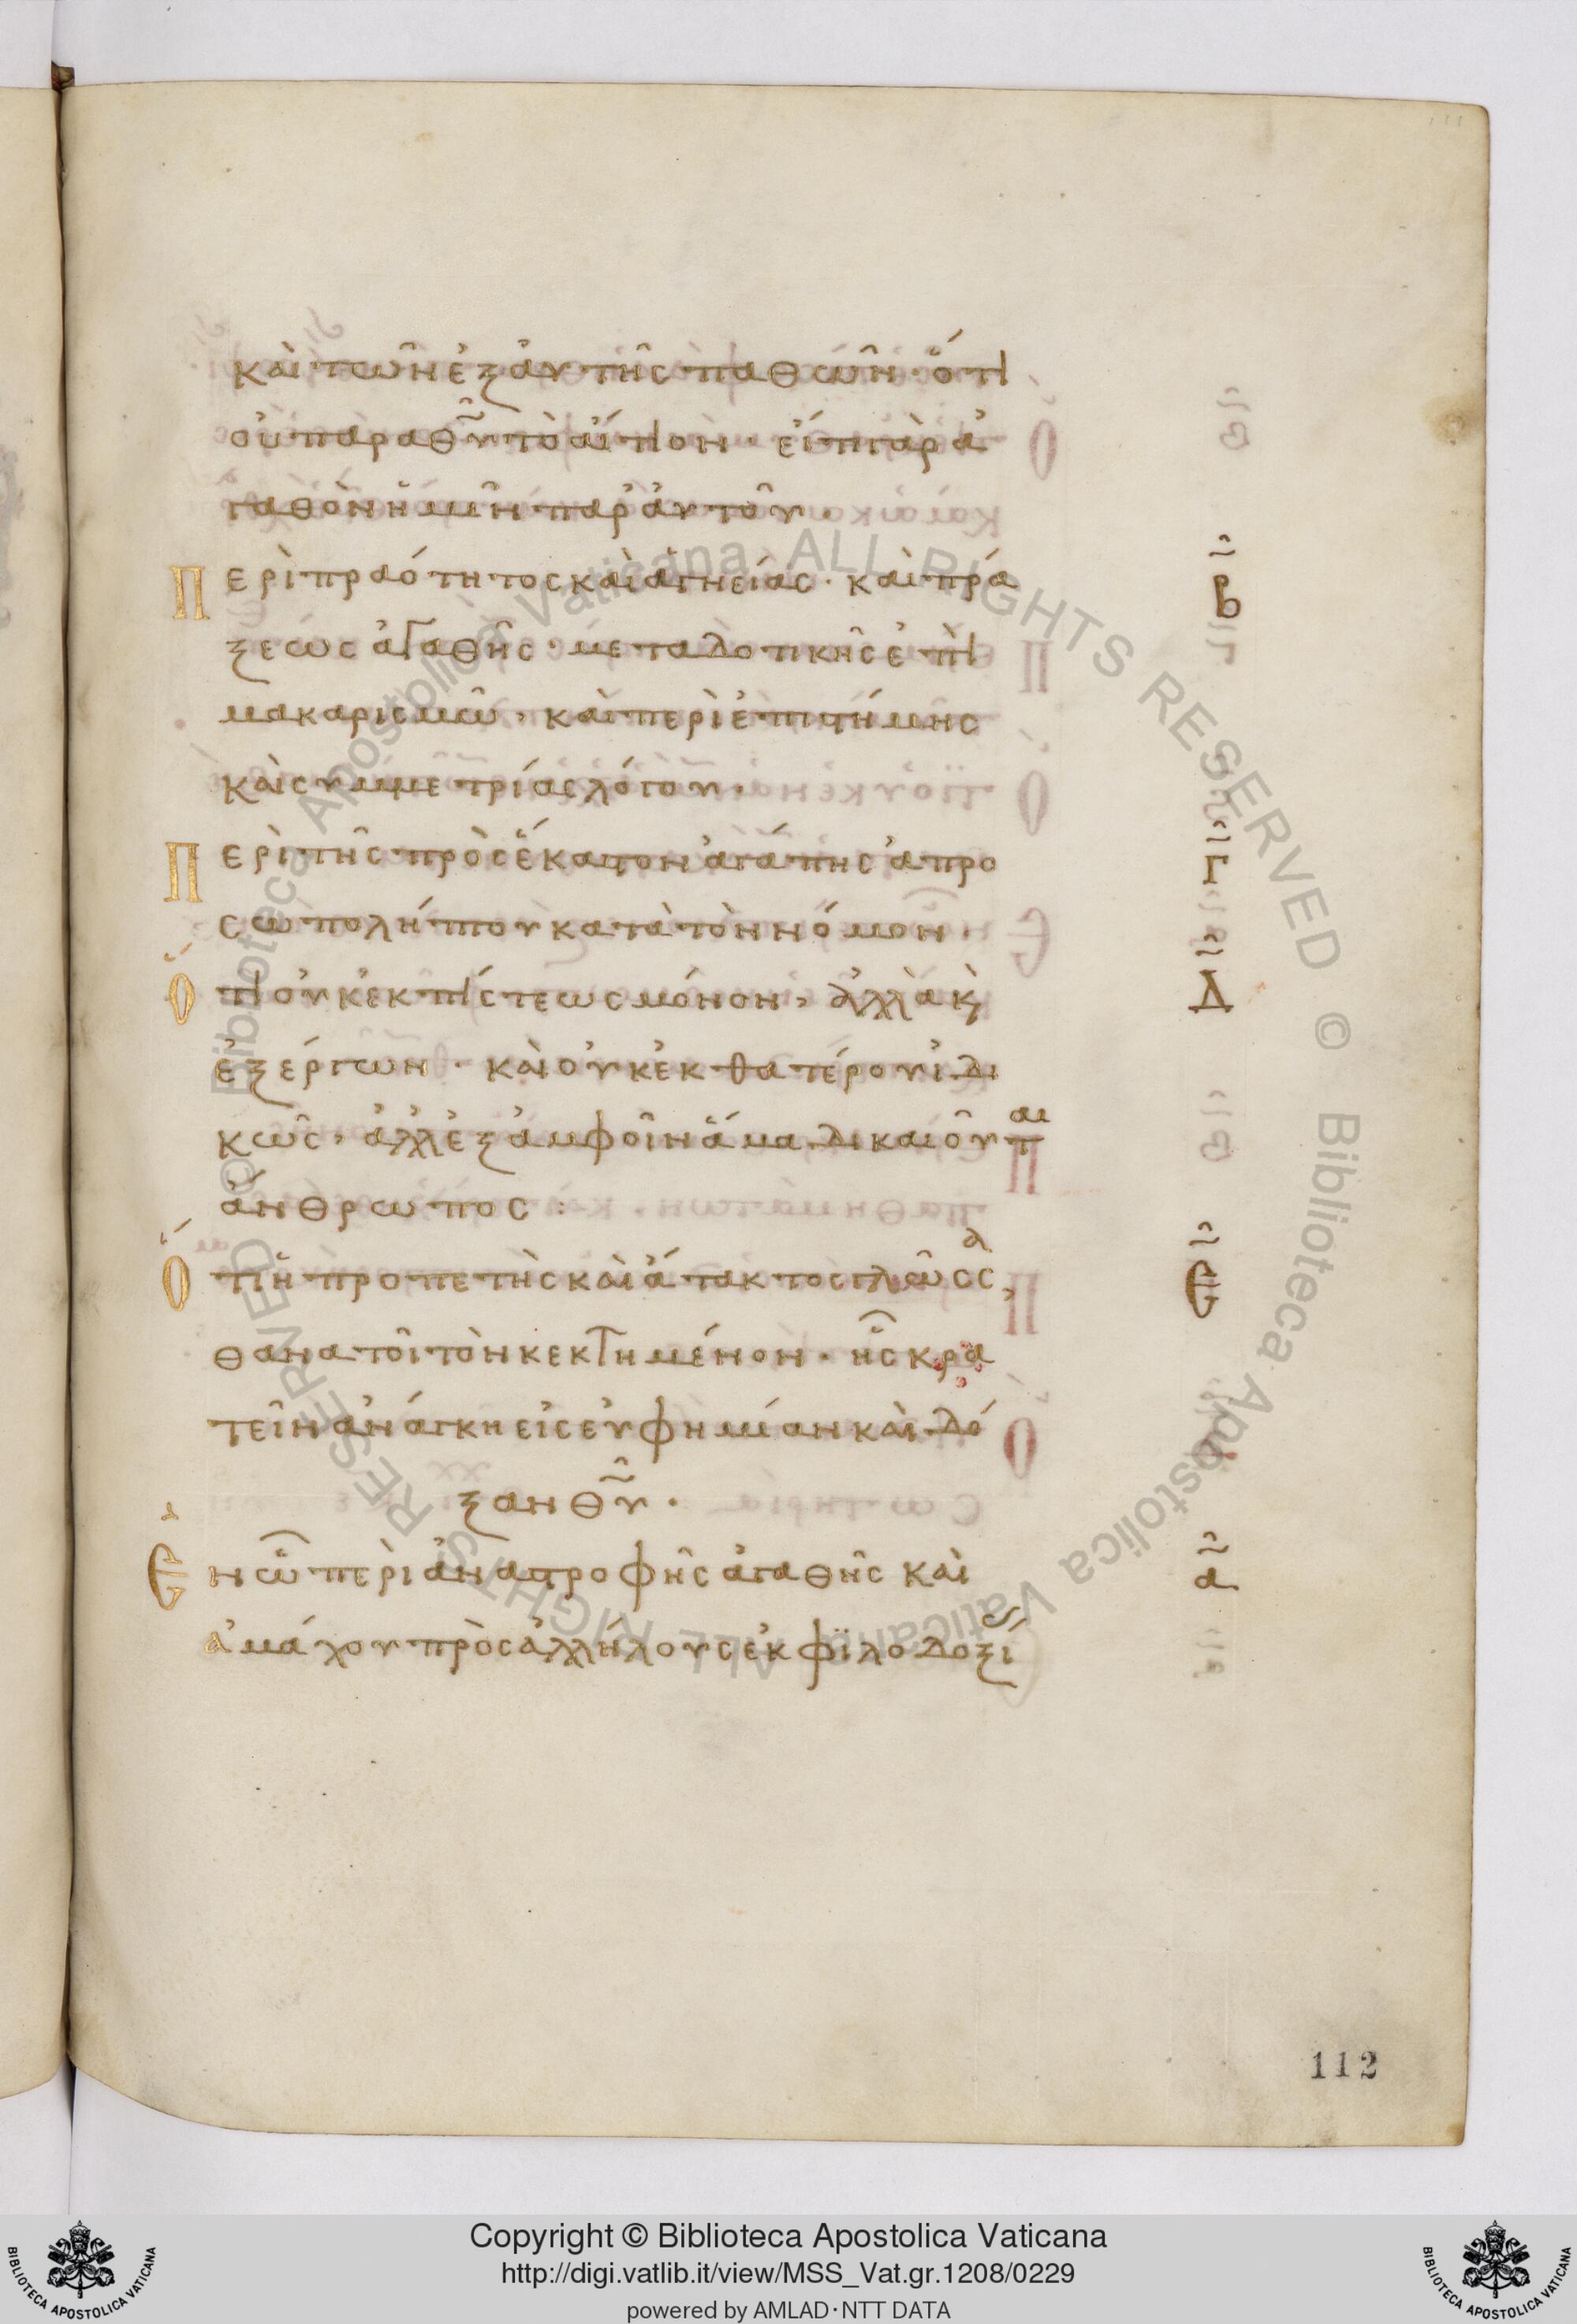 καὶ τῶν ἐξ αὐτῆς παθῶν· ὅτι
οὐ παρὰ θῦ τὸ αἴτιον· εἴ τι γὰρ ἀ
γαθὸν ἡμῖν παρ' αὐτοῦ·
Περὶ πραότητος καὶ ἁγνείας· καὶ πρά
β
ξεως ἀγαθῆς· μεταδοτικῆς ἐπὶ
μακαρισμῶ, καὶ περὶ ἐπιστήμης
καὶ συμμετρίας λόγου·
Περὶ τῆς πρὸς ἕκαστον ἀγάπης ἀπρο
Γ
σωπολήπτου κατὰ τὸν νόμον·
Ὅτι οὐκ ἐκ πίστεως μόνον, ἀλλὰ κ̀
Δ
ἐξ ἔργων· καὶ οὐκ ἐκ θατέρου ἰδι
κῶς, ἀλλ' ἐξ ἀμφοῖν ἅμα δικαιοῦται
ἄνθρωπος:
Ὅτι ἡ προπετὴς καὶ ἄτακτος γλῶσσα,
Ε
θανατοῖ τὸν κεκτημένον· ἧς κρα
τεῖν ἀνάγκη εἰς εὐφημίαν καὶ δό
ξαν θῦ·
Ἐν ᾧ περὶ ἀναστροφῆς ἀγαθῆς καὶ
α
ἀμάχου πρὸς ἀλλήλους ἐκ φϊλοδοξί
112
Copyright © Biblioteca Apostolica Vaticana
http://digi.vatlib.it/view/MSS_Vat.gr.1208/0229
powered by AMLAD·NTT DATA
BIBLIOTECA APOSTOLICA VATICANA
BIBLIOTECA APOSTOLICA VATICANA
Biblioteca Apostolica Vaticana ALL RIGHTS RESERVED © Biblioteca Apostolica Vaticana ALL RIGHTS RESERVED ©